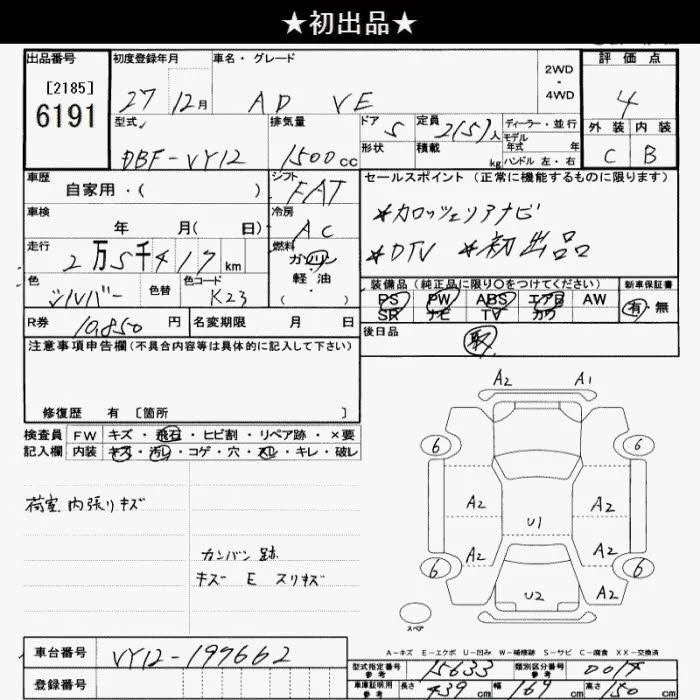 ★初出品★
出品番号
[2185]
6191
初度登録年月
27 12月
車名・グレード
AD VE
2WD
・
4WD
評価点
4
外装 内装
C B
型式
DBF-VY12
排気量
1500cc
ドア
5
定員
2(5)人
形状
積載
kg
ディーラー・並行
モデル
年式 年
ハンドル 左・右
車歴
自家用・( )
シフト
FAT
車検
年 月( 日)
冷房
AC
走行
2万5千417km
燃料
ガソリン
軽油
・
( )
色
シルバー
色替
色コード
K23
R券
10,850円
名変期限 月 日
セールスポイント(正常に機能するものに限ります)
*カロッツェリアナビ
*DTV *初出品
装備品(純正品に限り○をつけてください)
PS PW ABS エアB AW
SR ナビ TV カワ
新車保証書
有・無
後日品
取
注意事項申告欄(不具合内容等は具体的に記入して下さい)
修復歴 有 [箇所 ]
検査員
記入欄
FW キズ・飛石・ヒビ割・リペア跡・×要
内装 キズ・汚レ・コゲ・穴・スレ・キレ・破レ
荷室内張りキズ
カンバン跡
キズ E スリキズ
A2 A1
6 6
A2 A2
U1
A2 A2
6 6
U2 A2
スペア
A-キズ E-エクボ U-凹み W-補修跡 S-サビ C-腐食 XX-交換済
車台番号
VY12-197662
登録番号
型式指定番号
参考
15633
類別区分番号
参考
0014
車庫証明用
参考
長さ 439cm 幅 169cm 高さ 150cm